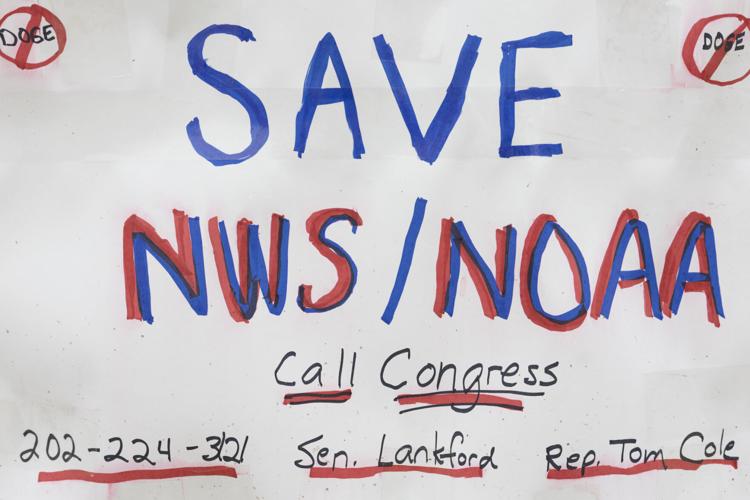 DOGE DOGE
SAVE
NWS/NOAA
Call Congress
202-224-3121 Sen. Lankford Rep. Tom Cole